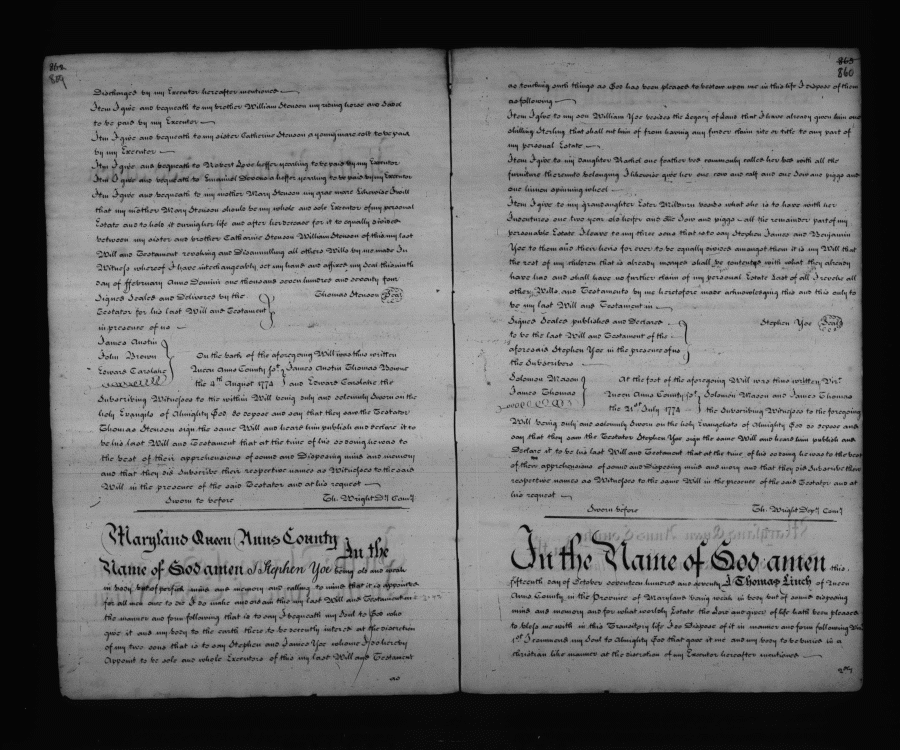 862
859
Discharged by my Executor hereafter mentioned
Item I give and bequeath to my brother William Stenson my riding horse and Sadel
to be paid by my Executor
Itm I give and bequeath to my sister Catherine Stenson a young mare colt to be paid
by my Executor
Itm I give and bequeath to Robert Love heffer yearling to be paid by my Executor
Itm I give and bequeath to Emanuel a heffer yearling to be paid by my Executor
Itm I give and bequeath to my mother Mary Stenson my gray mare Likewise I will
that my mother Mary Stenson should be my whole and sole Executor of my personal
Estate and to hold it during her life and after her decease for it to equally divided
between my sister and brother Catharine Stenson William Stenson of this my last
Will and Testament revoking and Disannulling all others Wills by me made In
Witness whereof I have interchangeably set my hand and affixed my seal this ninth
day of ffebruary Anno Domini one thousand seven hundred and seventy four
Signed Sealed and Delivered by the Thomas Stenson Seal
Testator for his last Will and Testament
in presence of us
James Austin
John Brown On the back of the aforegoing Will was thus written
Edward Carslake Queen Anns County sst James Austin Thomas Bowne
the 4th August 1774 and Edward Carslake the
Subscribing Witnesses to the within Will being duly and solemnly Sworn on the
holy Evangels of Almighty God do depose and say that they saw the Testator
Thomas Stenson sign the same Will and heard him publish and declare it to
be his last Will and Testament that at the time of his so doing he was to
the best of their apprehensions of sound and Disposing mind and memory
and that they did Subscribe their respective names as Witnesses to the said
Will in the presence of the said Testator and at his request
Sworn to before Th. Wright Dy Comy
Maryland Queen Anns County In the
Name of God amen I Stephen Yoe being old and weak
in body but of perfect mind and memory and calling to mind that it is appointed
for all men once to die I do make and ordain this my last Will and Testament in
the manner and form following that is to say I bequeath my Soul to God who
gave it and my body to the earth there to be decently intered at the discretion
of my two sons that is to say Stephen and James Yoe whome I do hereby
Appoint to be sole and whole Executors of this my last Will and Testament
as
863
860
as touching such things as God has been pleased to bestow upon me in this life I dispose of them
as following
Item I give to my son William Yoe besides the Legacy of Land that I have already given him one
shilling Sterling that shall cut him of from having any furder claim rite or title to any part of
my personal Estate
Item I give to my daughter Rachel one feather bed commonly called her bed with all the
furniture thereunto belonging I likewise give her one cow and calf and one Sow and piggs and
one linnen spinning wheel
Item I give to my grandaughter Ester Milburn besids what she is to have with her
Indentures one two year old heifer and One Sow and piggs all the remainder part of my
personable Estate I leave to my three sons that is to say Stephen James and Benjamin
Yoe to them and their heris for ever to be equally divided amongst them it is my Will that
the rest of my children that is already maryed shall be contented with what they already
have had and shall have no further claim of my personal Estate Last of all I revoke all
other Wills and Testaments by me heretofore made acknowledging this and this only to
be my last Will and Testament in
Signed Sealed published and Declared Stephen Yoe Seal
to be the last Will and Testament of the
aforesaid Stephen Yoe in the presence of us
the Subscribers
Solomon Mason At the foot of the aforegoing Will was thus written Vizt
James Thomas Queen Anns County sst Solomon Mason and James Thomas
the 21st July 1774 the Subscribing Witnesses to the foregoing
Will being duly and solemnly Sworn on the holy Evangelists of Almighty God do depose and
say that they saw the Testator Stephen Yoe sign the same Will and heard him publish and
Declare it to be his last Will and Testament that at the time of his so doing he was to the best
of their apprehensions of sound and Disposing mind and mory and that they did Subscribe their
respective names as Witnesses to the same Will in the presence of the said Testator and at
his request
Sworn before Th. Wright Depy Comy
In the Name of God amen this
fifteenth day of October seventeen hundred and seventy I Thomas Linch of Queen
Anns County in the Province of Maryland being weak in body but of sound disposing
mind and memory and for what worldly Estate the Lord and giver of life hath been pleased
to bless me with in this Transitory life I do Dispose of it in manner and form following Viz
1st I commend my Soul to Almighty God that gave it me and my body to be buried in a
christian like manner at the discretion of my Executor hereafter mentioned